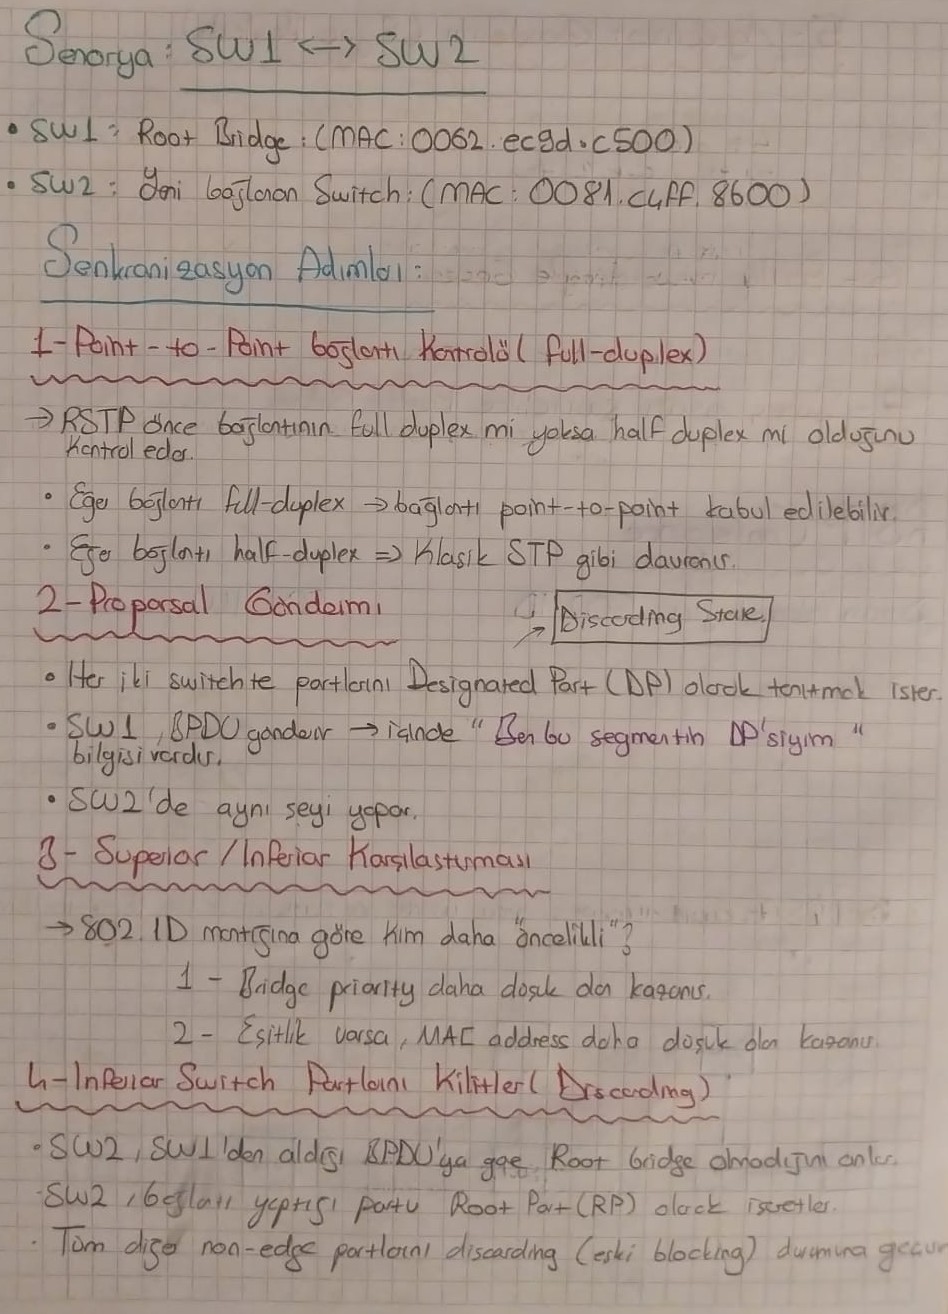 Senorya: SW1 <-> SW2
• SW1: Root Bridge: (MAC: 0062.ec9d.c500)
• SW2: Yeni bağlanan Switch: (MAC: 0081.c4ff.8600)
Senkranizasyon Adımları:
1-Point-to-Point bağlantı Kontrolü (full-duplex)
→ RSTP önce bağlantının full duplex mi yoksa half duplex mi olduğunu
kontrol eder.
• Eğer bağlantı full-duplex → bağlantı point-to-point kabul edilebilir.
• Eğer bağlantı half-duplex => Klasik STP gibi davranır.
2-Proporsal Gönderimi
→ Discarding State
• Her iki switchte portlarını Designated Port (DP) olarak tanıtmak ister.
• SW1, BPDU gönderir → içinde "Ben bu segmentin DP'siyim"
bilgisi vardır.
• SW2'de aynı seyi yapar.
3- Superior / Inferior Karşılastırması
→ 802.1D mantığına göre kim daha "öncelikli"?
1 - Bridge priority daha düşük olan kazanır.
2 - Eşitlik varsa, MAC address daha düşük olan kazanır.
4-Inferior Switch Portlarını Kilitler (Discarding)
• SW2, SW1'den aldığı BPDU'ya göre Root bridge olmadığını anlar.
• SW2, bağlantı yaptığı portu Root Port (RP) olarak işaretler.
• Tüm diğer non-edge portlarını discarding (eski blocking) durumuna geçirir